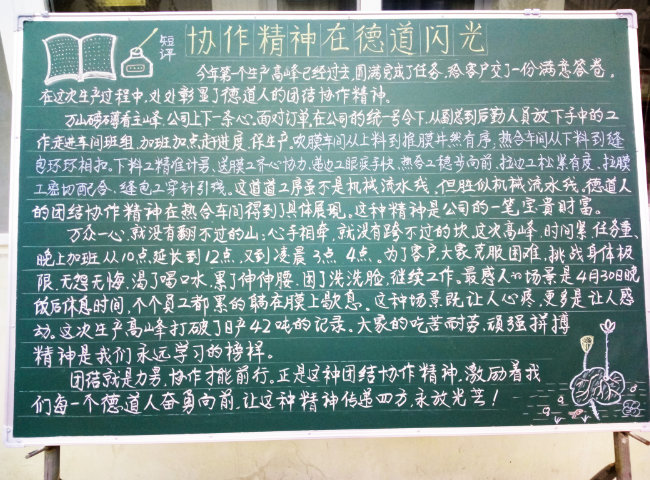 短评
协作精神在德道闪光
今年第个生产高峰已经过去,圆满完成了任务,给客户交了一份满意答卷。
在这次生产过程中,处处彰显了德道人的团结协作精神。
万山磅礴看主峰,公司上下一条心,面对订单在公司的统一号令下,从副总到后勤人员放下手中的工
作走进车间班组,加班加点赶进度,保生产。吹膜车间从上料到推膜井然有序,热合车间从下料到缝
包环环相扣。下料工精准计算,送膜工齐心协力,递边工眼疾手快,热合工稳步向前,拉边工松紧有度,拉膜
工密切配合,缝包工穿针引线。这道道工序虽不是机械流水线,但胜似机械流水线。德道人
的团结协作精神在热合车间得到了具体展现。这种精神是公司的一笔宝贵财富。
万众一心,就没有翻不过的山;心手相牵,就没有跨不过的坎。这次高峰,时间紧任务重,
晚上加班从10点延长到12点,又到凌晨3点、4点、为了客户,大家克服困难,挑战身体极
限,无怨无悔,渴了喝口水,累了伸伸腰,困了洗洗脸,继续工作。最感人的场景是4月30日晚
饭后休息时间,个个员工都累的躺在膜上歇息。这种场景既让人心疼,更多是让人感
动。这次生产高峰打破了日产42吨的记录。大家的吃苦耐劳,顽强拼搏
精神是我们永远学习的榜样。
团结就是力量,协作才能前行。正是这种团结协作精神,激励着我
们每一个德道人奋勇向前,让这种精神传递四方,永放光芒!